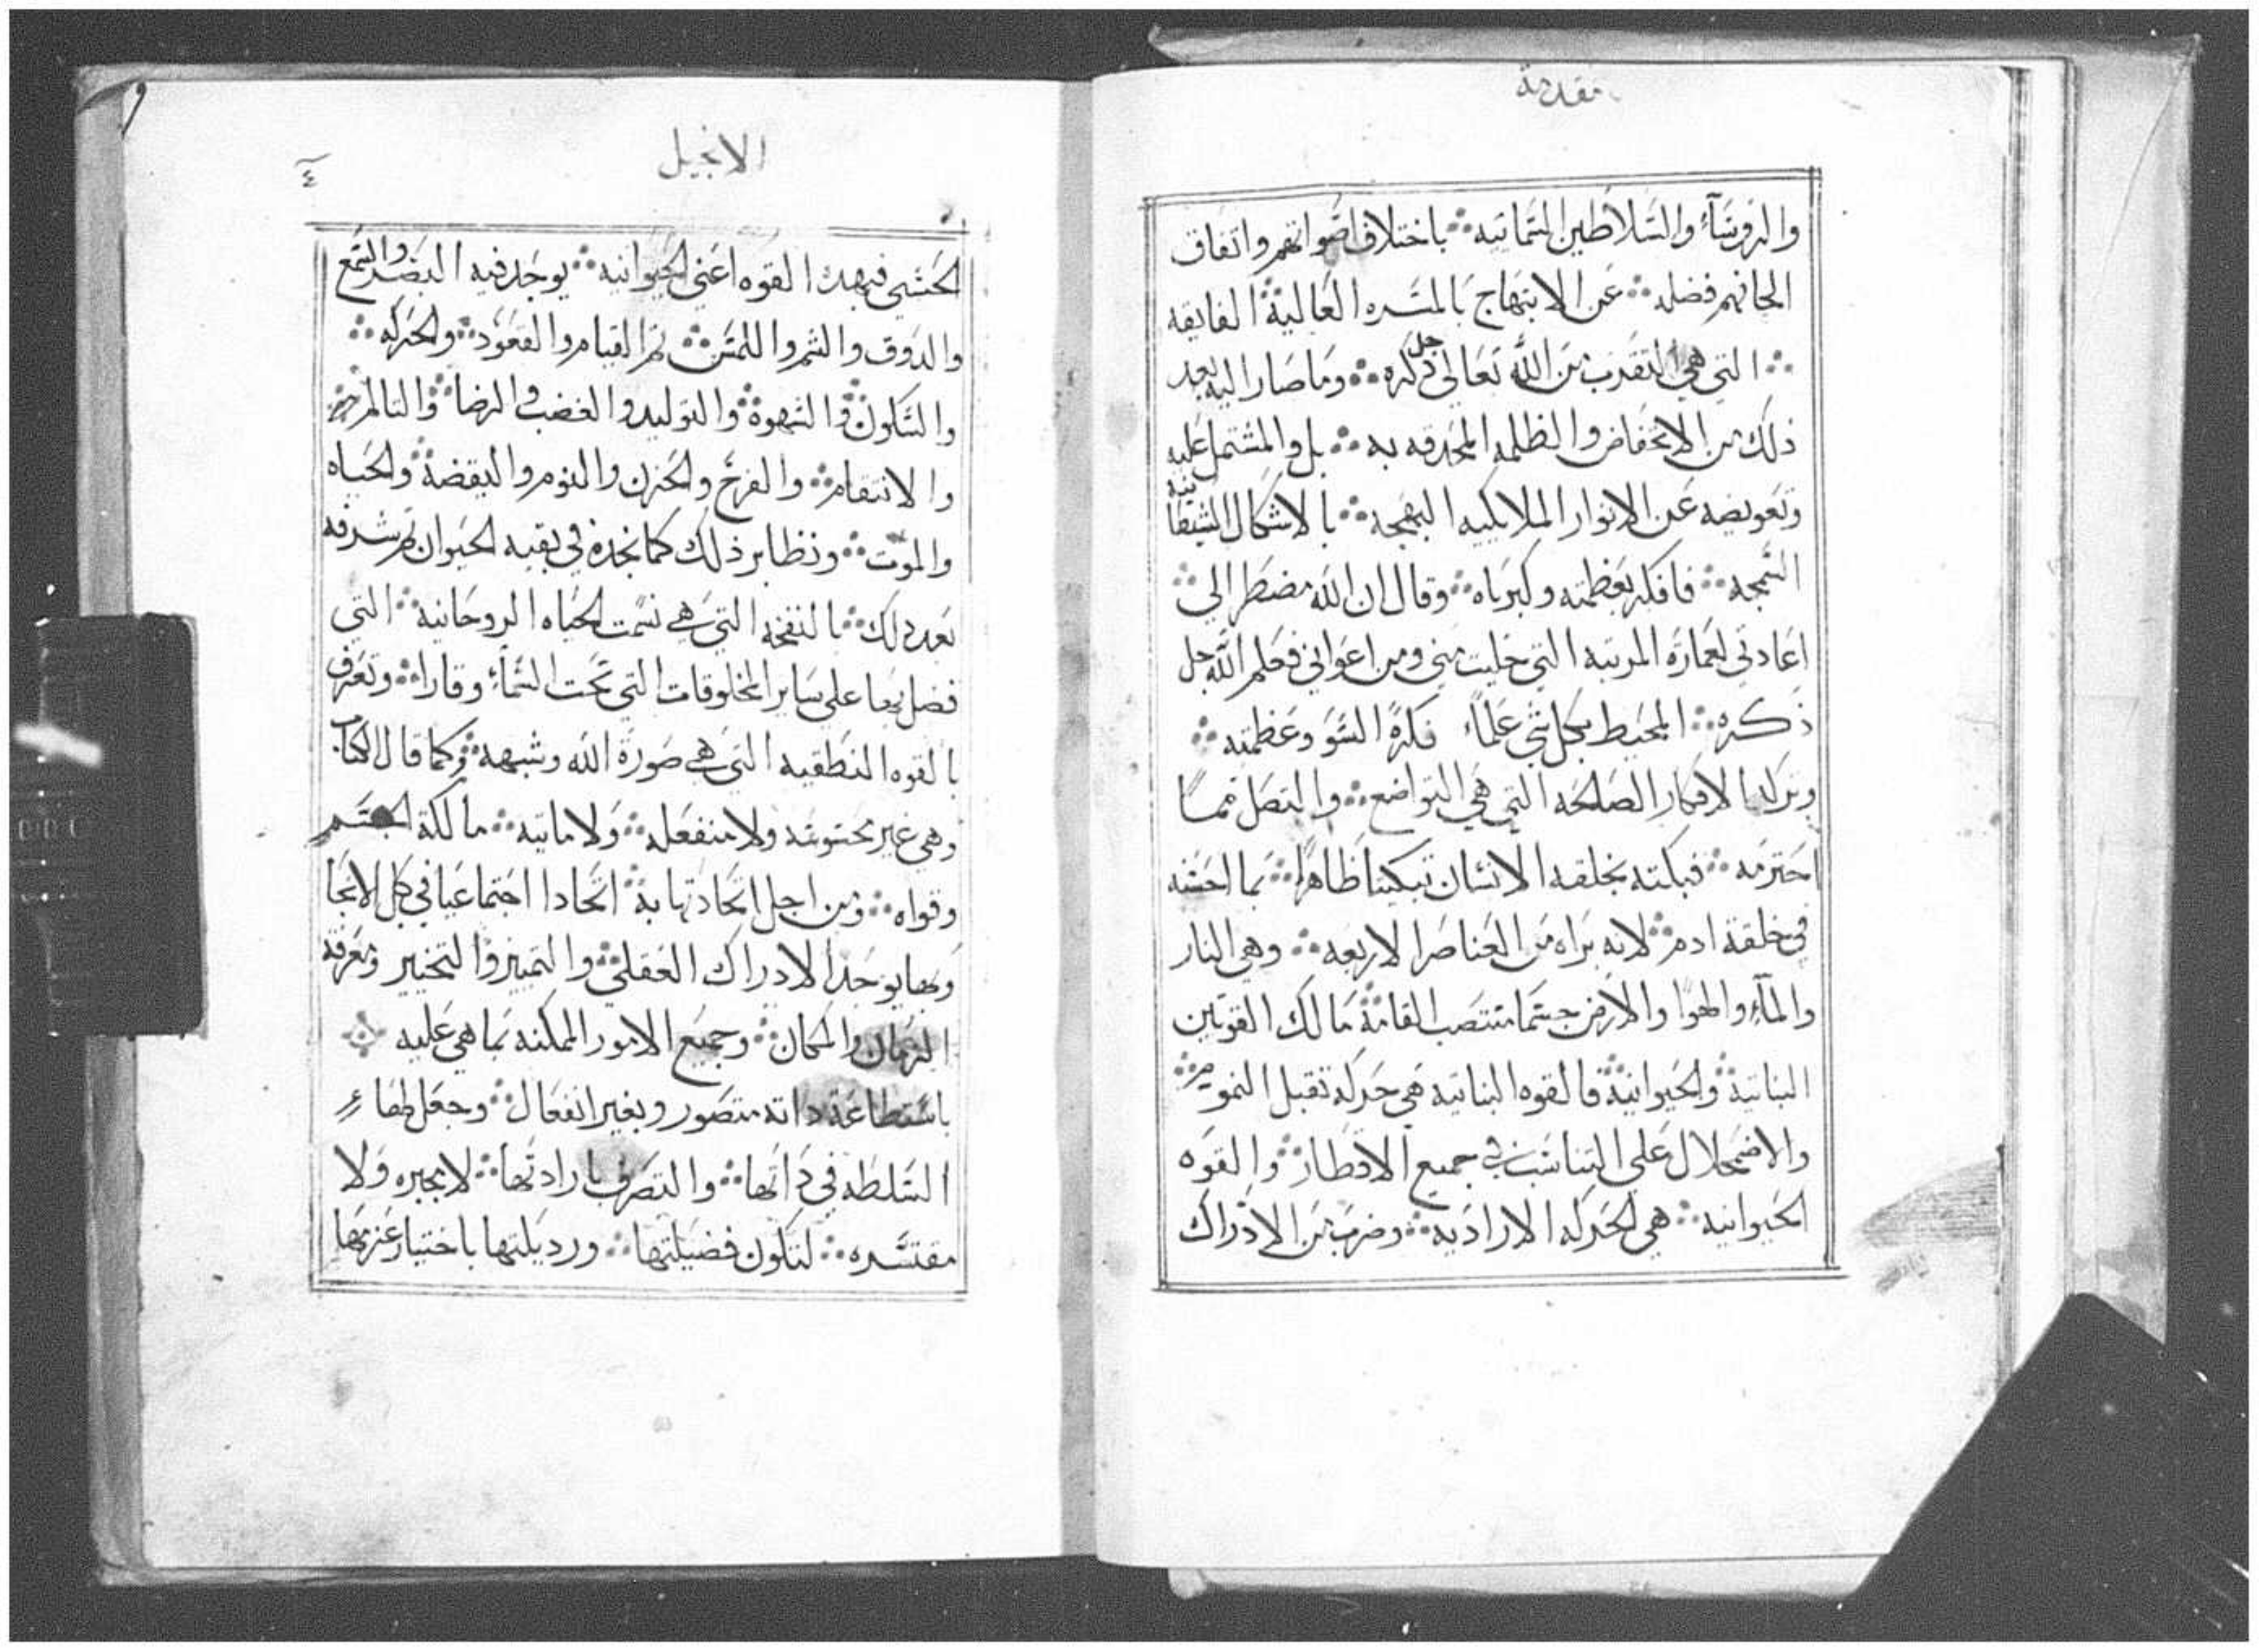 مقدمة
والروسآء والسلاطين السمائيه ∴ باختلاف اصواتهم واتفاق
الحانهم فضله ∴ عن الابتهاج بالمسره العالية ∴ الفايقه
∴ التي هي التقرب من الله تعالى جل ذكره ∴ وما صار اليه بعد
ذلك من الانخفاض والظلمه المحدقه به ∴ بل والمشتمل عليه
وتعويضه عن الانوار الملايكيه البهجه ∴ بالاشكال الشيطانيه
السمجه ∴ فافكر بعظمته وكبرياه ∴ وقال ان الله مضطر الي ∴
اعادتي لعمارة المرتبه التي خليت مني ومن اعواني فعلم الله جل
ذكره ∴ المحيط بكل شي علماً فكرة السو وعظمته ∴
وتركه الافكار الصالحه التي هي التواضع ∴ والتنصل مما
اجترمه ∴ فبكته بخلقه الانسان تبكيتا ظاهرا ∴ بما احسنه
في خلقة ادم ∴ لانه براه من العناصر الاربعه ∴ وهي النار
والمآء والهوا والارض جسما منتصب القامة ∴ مالك القوتين
النباتية ∴ والحيوانية ∴ فالقوه النباتيه هي حركه تقبل النمو ∴
والاضمحلال على التناسب في جميع الاقطار ∴ والقوه
الحيوانيه ∴ هي الحركه الاراديه ∴ وضرب من الادراك
الانجيل
٤
الحسي فبهذه القوه اعني الحيوانيه ∴ يوجد فيه البصر والسمع
والدوق والشم واللمس ∴ ثم القيام والقعود ∴ والحركه ∴
والسكون ∴ والشهوة ∴ والتوليد والغضب والرضا ∴ والتالم ∴
والانتقام ∴ والفرح والحزن والنوم واليقضة ∴ والحياه
والموت ∴ ونظاير ذلك كما نجده في بقيه الحيوان ثم شرفه
بعد دلك ∴ بالنفخه التي هي نسمت الحياه الروحانيه ∴ التي
فضل بها على ساير المخلوقات التي تحت السماء وقارا ∴ وتعرف
بالقوه النطقيه التي هي صورة الله وشبهه ∴ وكما قال الكتاب
وهي غير محسوسه ولا منفعله ∴ ولا مايته ∴ مالكة الجسم
وقواه ∴ ومن اجل اتحادتها به ∴ اتحادا اجتماعيا في كل الانحا
وبها يوجد الادراك العقلي ∴ والتمييز والتخيير ومعرفة
الزمان والمكان ∴ وجميع الامور الممكنه بما هي عليه
باستطاعة داته متصور وبغير انفعال ∴ وجعل لها
السلطه في داتها ∴ والتصرف بارادتها ∴ لا مجبره ولا
مقتسره ∴ لتكون فضيلتها ∴ ورديلتها باختيار عزمها